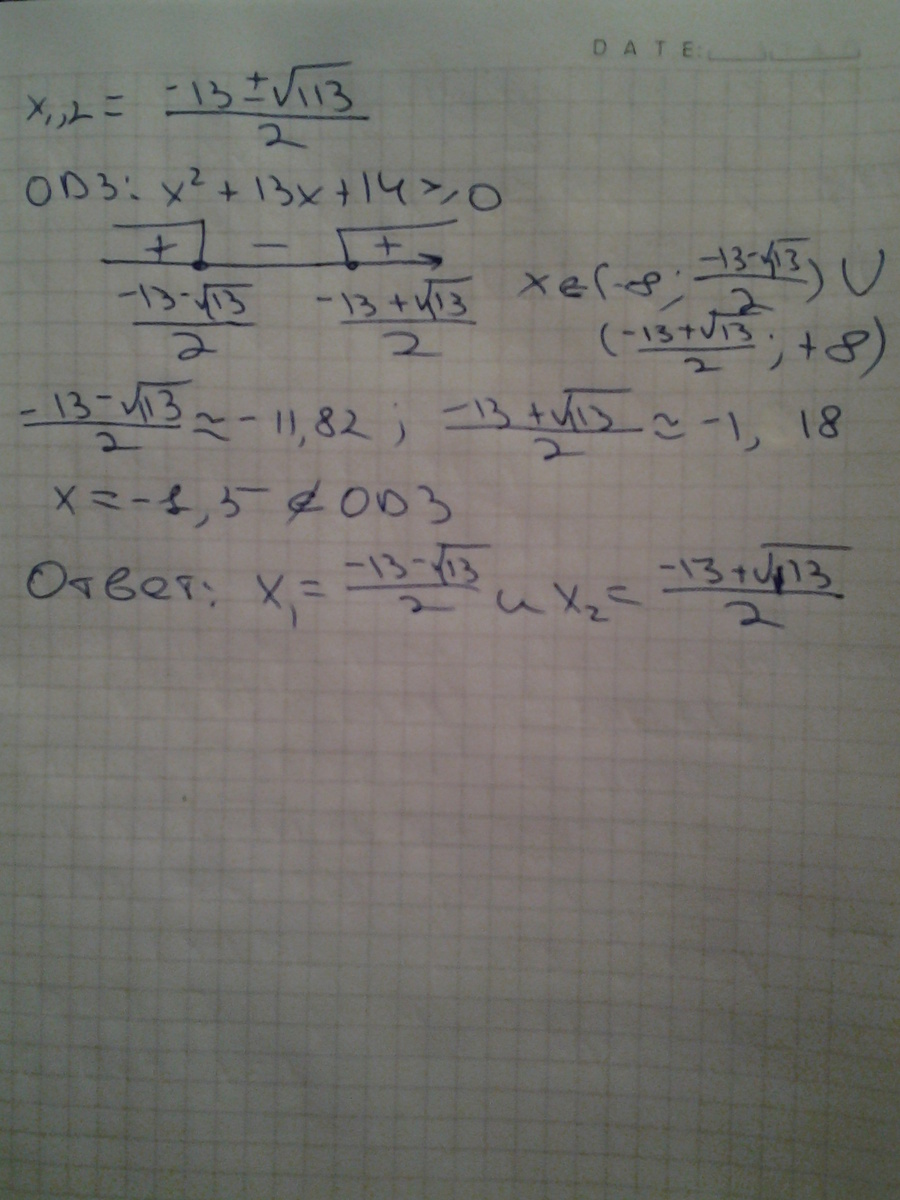 DATE:
x₁,₂ = (-13 ± √113)/2
ОДЗ: x² + 13x + 14 ≥ 0
+ − +
(-13-√13)/2 (-13+√13)/2 x ∈ (-∞; (-13-√13)/2) ∪
((-13+√13)/2; +∞)
(-13-√13)/2 ≈ -11,82; (-13+√13)/2 ≈ -1,18
x = -1,5 ∉ ОДЗ
Ответ: x₁ = (-13-√13)/2 и x₂ = (-13+√113)/2